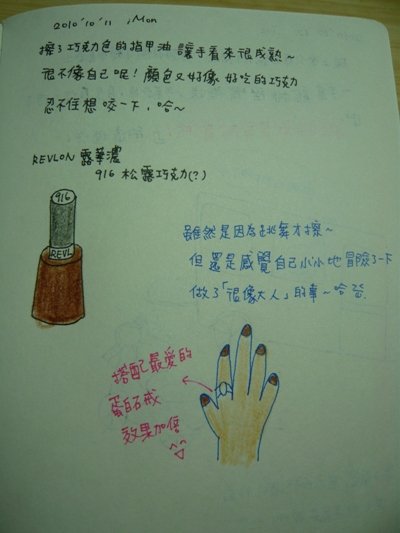 2010 '10 '11 , Mon
擦了巧克力色的指甲油 讓手看來很成熟~
很不像自己呢! 顏色又好像 好吃的巧克力
忍不住想咬一下, 哈~
REVLON 露華濃
916 松露巧克力(?)
916
REVL
雖然是因為跳舞才擦~
但還是感覺自己小小地冒險了一下
做了「很像大人」的事~哈
搭配最愛的
蛋白石戒
效果加倍
^^